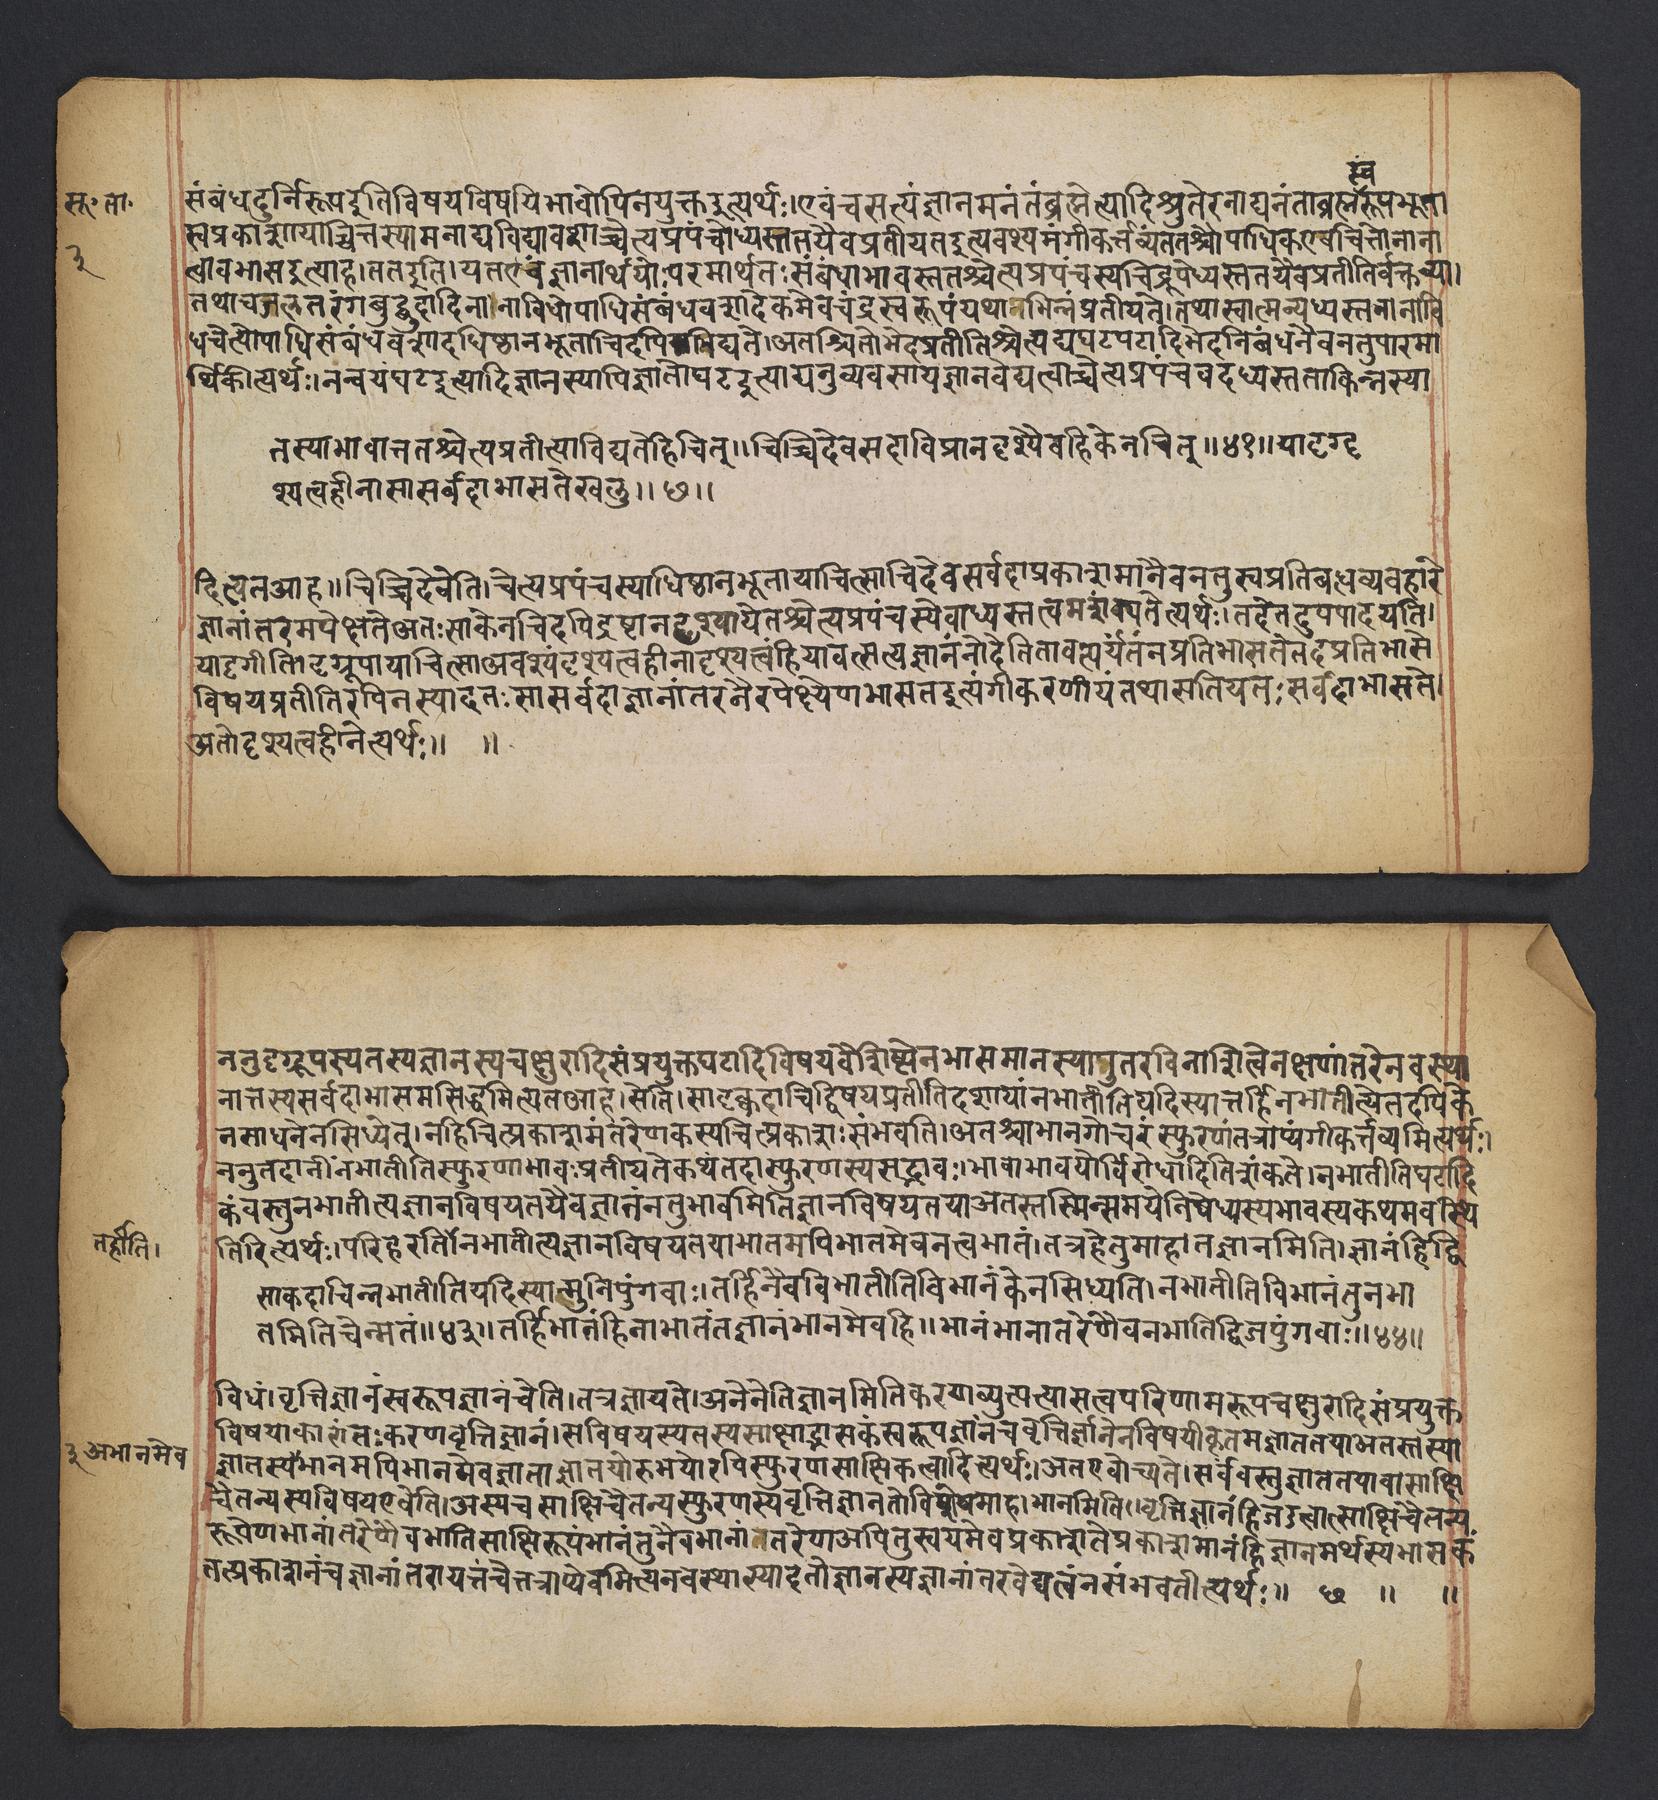 स्व
सू॰ ता॰
३
संबंधदुर्निरूपइतिविषयविषयिभावोपिनयुक्तइत्यर्थः।एवंचसत्यंज्ञानमनंतंब्रह्मेत्यादिश्रुतेरनाद्यनंताब्रह्मरूपभूता
स्वप्रकाशायाच्चित्तस्यामनाद्यविद्यावशाच्चैत्यप्रपंचोध्यस्ततयैवप्रतीयतइत्यवश्यमंगीकर्त्तव्यंततश्चौपाधिकएवचित्तोनाना
त्वावभासइत्याह।ततइति।यतएवंज्ञानार्थयोःपरमार्थतःसंबंधाभावस्ततश्चैत्यप्रपंचस्यचिद्रूपेध्यस्ततयैवप्रतीतिर्वक्तव्या।
तथाचजलतरंगबुद्बुदादिनानाविधोपाधिसंबंधवशादेकमेवचंद्रस्वरूपंयथानभिन्नंप्रतीयते।तथास्वात्मन्यध्यस्तनानावि
धचैत्योपाधिसंबंधवशादधिष्ठानभूताचिदपिभिद्यते।अतश्चितोभेदप्रतीतिश्चैत्यद्यघटपटादिभेदनिबंधनैवनतुपारमा
र्थिकीत्यर्थः।नन्वयंघटइत्यादिज्ञानस्यापिज्ञातोघटइत्याद्यनुव्यवसायज्ञानवेद्यत्वाच्चैत्यप्रपंचवदध्यस्तताकिन्नस्या
तस्याभावात्ततश्चैत्यप्रतीत्याविद्यतेहिचित्॥चिच्चिदेवसदाविप्रानदृश्यैवहिकेनचित्॥४१॥यादृग्दृ
श्यत्वहीनासासर्वदाभासतेखलु॥छ॥
दित्यतआह॥चिच्चिदेवेति।चैत्यप्रपंचस्याधिष्ठानभूतायाचित्साचिदेवसर्वदाप्रकाशमानैवनतुस्वप्रतिबध्धव्यवहारे
ज्ञानांतरमपेक्षतेअतःसाकेनचिदपिद्रष्टानदृश्यायैतश्चैत्यप्रपंचस्यैवाध्यस्तत्वमशंक्यतेत्यर्थः।तदेतदुपपादयति।
यादृगीति।दृग्रूपायाचित्साअवश्यंदृश्यत्वहीनादृश्यत्वंहियावत्सत्यज्ञानंनोदेतितावत्पर्यंतंनप्रतिभासतेतदप्रतिभासे
विषयप्रतीतिरपिनस्यादतःसासर्वदाज्ञानांतरनैरपेक्ष्येणभासतइत्यंगीकरणीयंतथासतियतःसर्वदाभासते।
अतोदृश्यत्वहीनेत्यर्थः॥ ॥
ननुदृग्रूपस्यतस्यज्ञानस्यचक्षुरादिसंप्रयुक्तघटादिविषयवैशिष्ट्येनभासमानस्याशुतरविनाशित्वेनक्षणांतरेनवस्था
नात्तस्यसर्वदाभासमसिद्धमित्यतआह।सेति।सादृक्कदाचिद्विषयप्रतीतिदशायांनभातीतियदिस्यात्तर्हिनभातीत्येतदपिके
नसाधनेनसिध्येत्।नहिचित्प्रकाशमंतरेणकस्यचित्प्रकाशःसंभवति।अतश्चाभानगोचरंस्फुरणंतत्राप्यंगीकर्त्तव्यमित्यर्थः।
ननुतदानींनभातीतिस्फुरणाभावःप्रतीयतेकथंतदास्फुरणस्यसद्भावः।भावाभावयोर्विरोधादितिशंकते।नभातीतिघटादि
कंवस्तुनभातीत्यज्ञानविषयतयैवज्ञानंनतुभावमितिज्ञानविषयतयाअतस्तस्मिन्समयेनिषेध्यस्यभावस्यकथमवस्थि
तिरित्यर्थः।परिहरति।नभातीत्यज्ञानविषयतयाभातमपिभातमेवनत्वभातं।तत्रहेतुमाह।तज्ञानमिति।ज्ञानंहिद्वि
तर्हीति।
साकदाचिन्नभातीतियदिस्यान्मुनिपुंगवाः।तर्हिनैवविभातीतिविभानंकेनसिध्यति।नभातीतिविभानंतुनभा
तमितिचेन्मतं॥४३॥तर्हिभातंहिनाभातंतज्ञानंभानमेवहि॥भानंभानांतरेणैवनभातिद्विजपुंगवाः॥४४॥
विधं।वृत्तिज्ञानंस्वरूपज्ञानंचेति।तत्रज्ञायते।अनेनेतिज्ञानमितिकरणव्युत्पत्यासत्वपरिणामरूपचक्षुरादिसंप्रयुक्त
विषयाकारांतःकरणवृत्तिज्ञानं।सविषयस्यतस्यसाक्षाद्भासकंस्वरूपज्ञानंचवृत्तिर्ज्ञानेनविषयीकृतमज्ञाततयाअतस्तस्या
३ अभानमेव
ज्ञातस्यभानमपिभानमेवज्ञाताज्ञातयोरुभयोरपिस्फुरणसाक्षिकत्वादित्यर्थः।अतएवोच्यते।सर्ववस्तुज्ञाततयावासाक्षि
चैतन्यस्यविषयएवेति।अस्यचसाक्षिचैतन्यस्फुरणस्यवृत्तिज्ञानतोविशेषमाह।भानमिति।वृत्तिज्ञानंहिजडत्वात्साक्षिचैतन्य
रूपेणभानांतरेणैवभातिसाक्षिरूपंभानंतुनैवभानांतरेणाअपितुस्वयमेवप्रकाशतेप्रकाशमानंहिज्ञानमर्थस्यभासकं
तत्प्रकाशनंचज्ञानांतरायत्तंचेत्तत्राप्येवमित्यनवस्थास्यादतोज्ञानस्यज्ञानांतरवेद्यत्वंनसंभवतीत्यर्थः॥ छ ॥ ॥